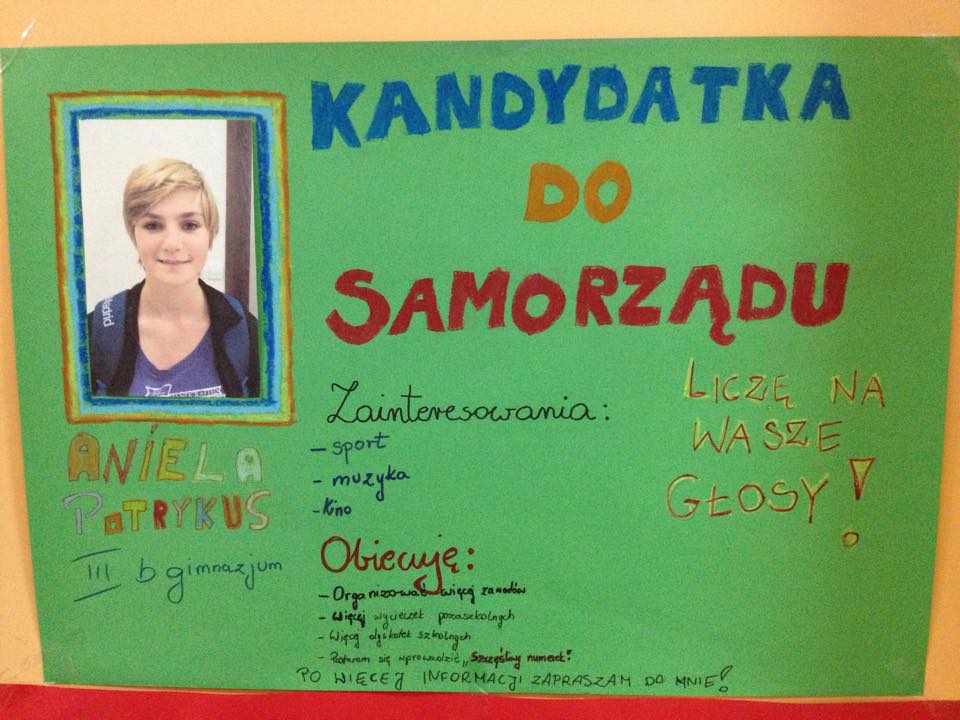 KANDYDATKA
DO
SAMORZĄDU
Madrid
ANIELA
PATRYKUS
III b gimnazjum
Zainteresowania:
- sport
- muzyka
- Kino
LICZĘ NA
WASZE
GŁOSY!
Obiecuję:
- Organizować więcej zawodów
- Więcej wycieczek pozaszkolnych
- Więcej dyskotek szkolnych
- Postaram się wprowadzić „Szczęśliwy numerek"
PO WIĘCEJ INFORMACJI ZAPRASZAM DO MNIE!